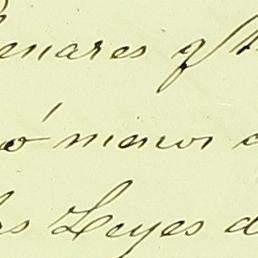 enares q/
ó menos
Leyes d